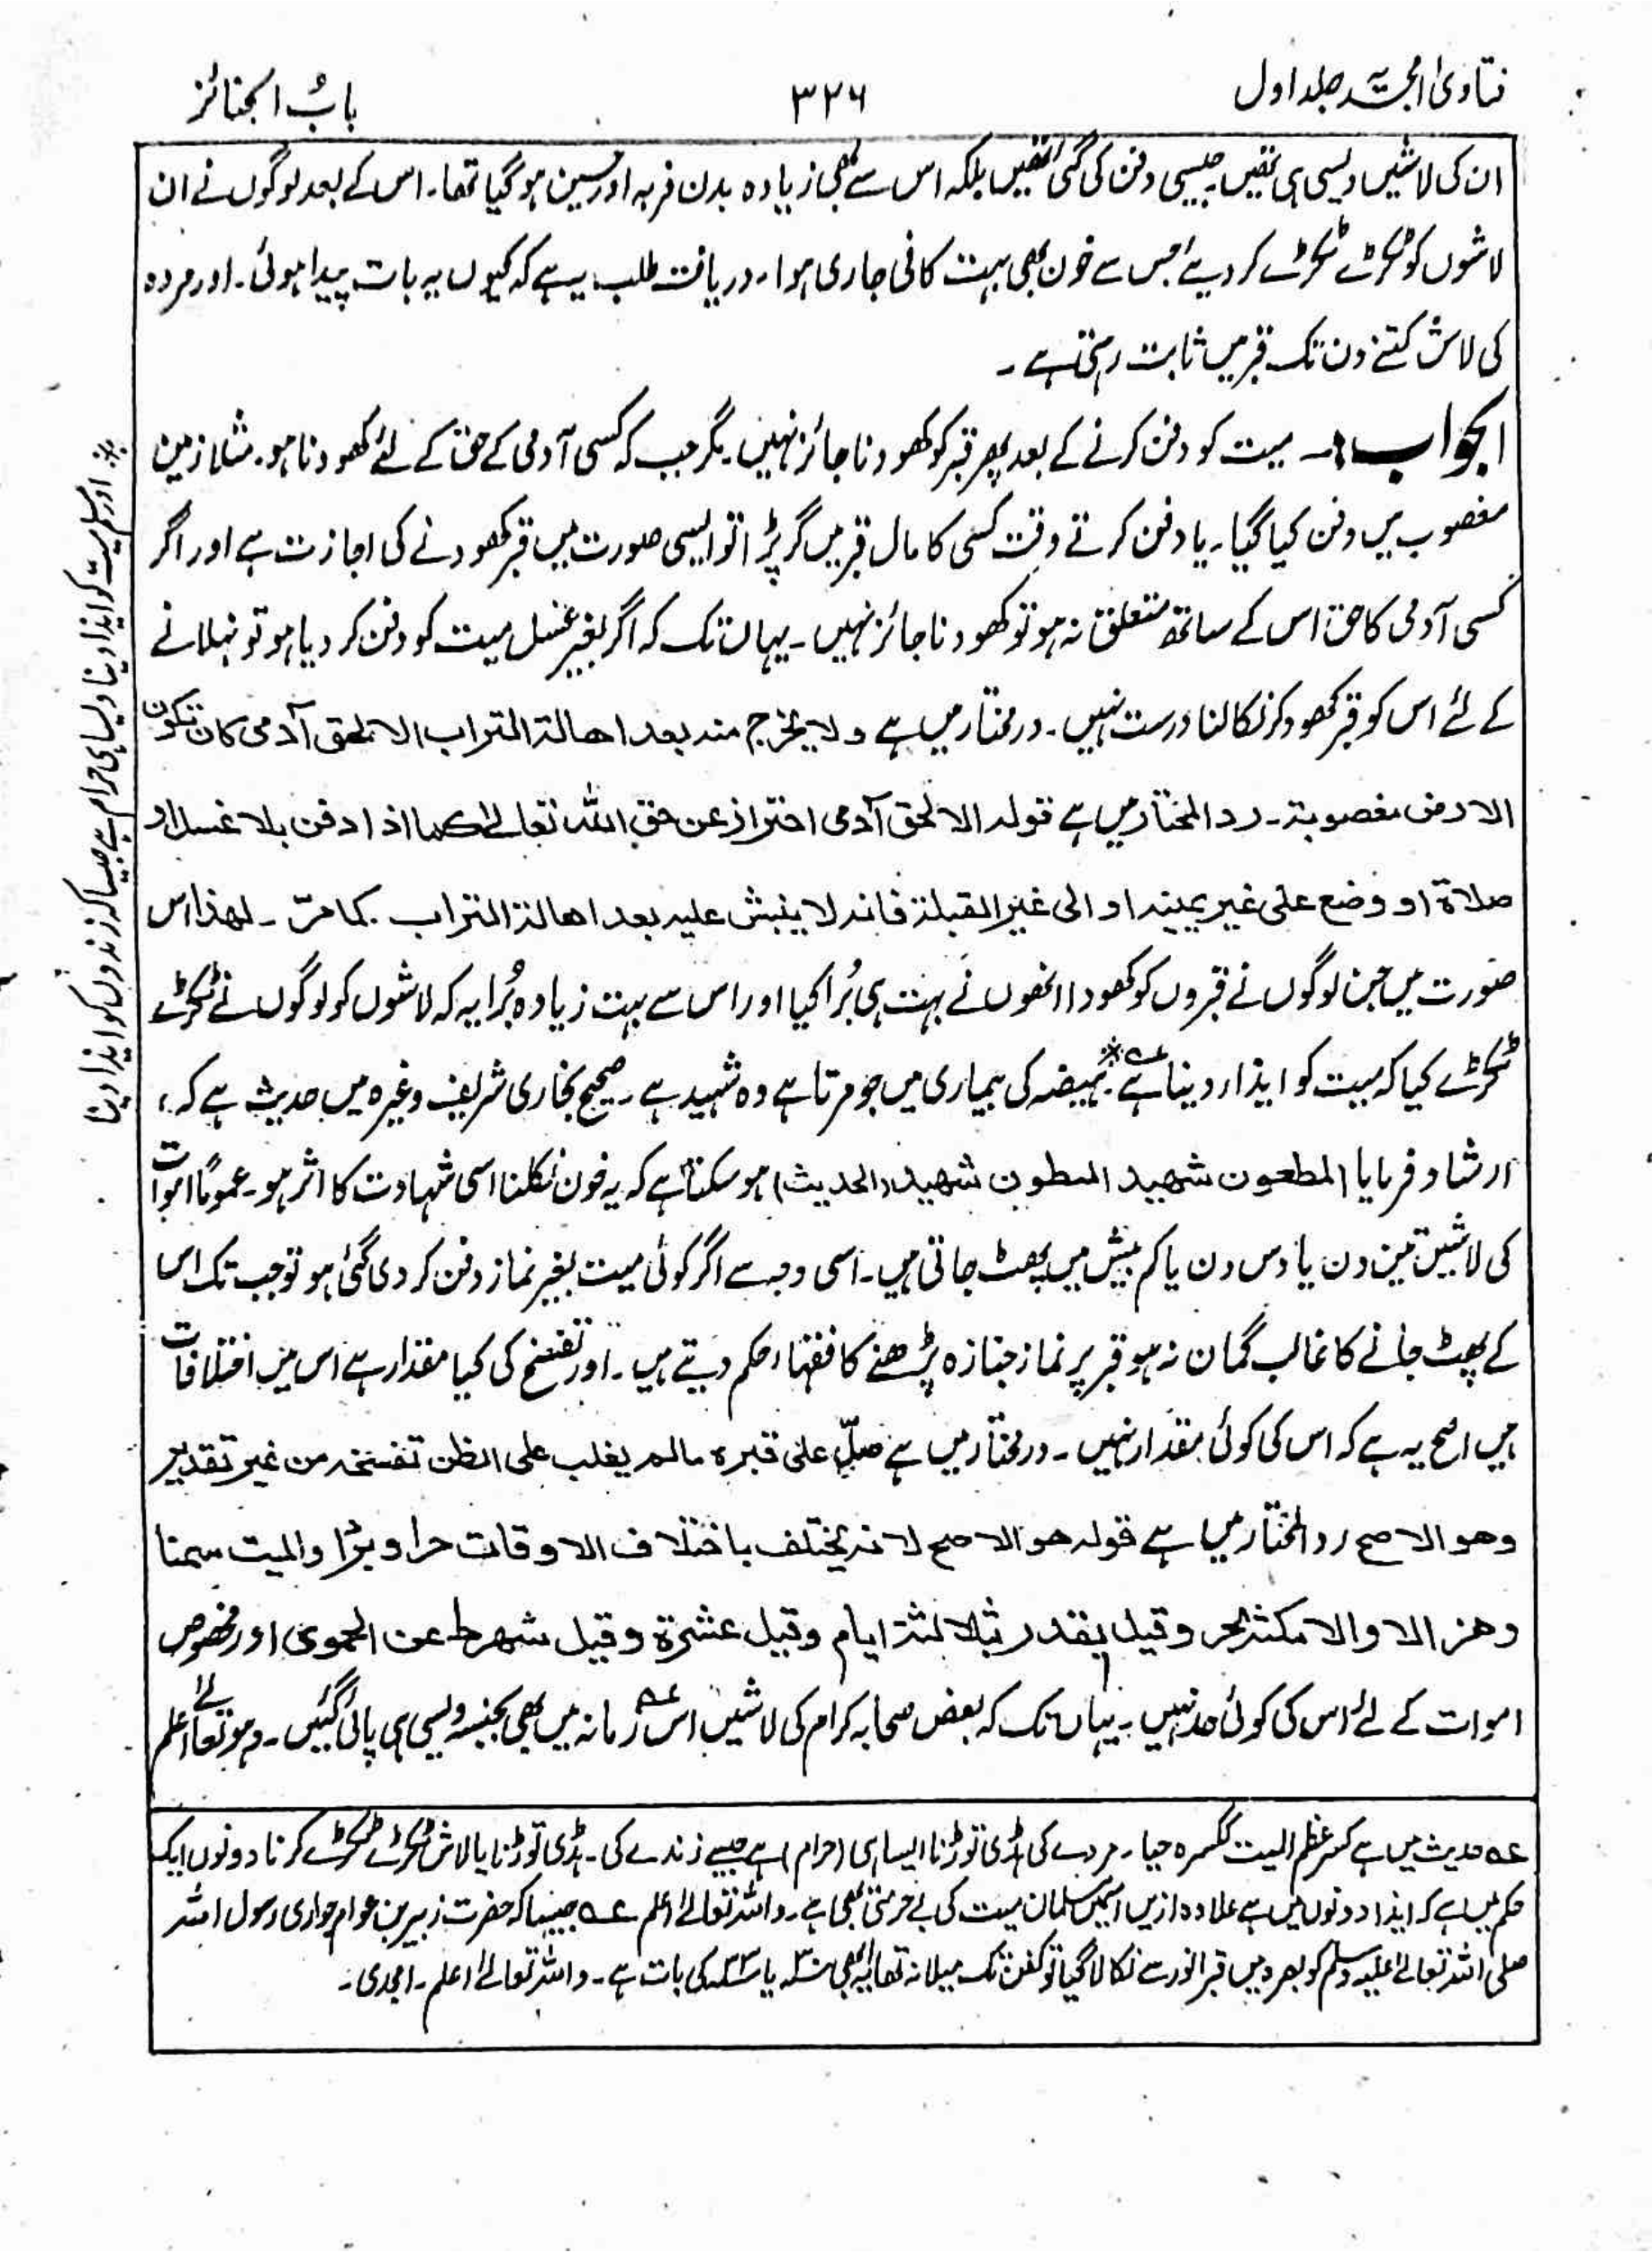 فتاویٰ امجدیہ جلد اول
۳۲۶
بابُ الجنائز
ان کی لاشیں ویسی ہی تھیں۔ جیسی دفن کی گئی تھیں بلکہ اس سے بھی زیادہ بدن فربہ اور حسین ہو گیا تھا۔ اس کے بعد لوگوں نے ان
لاشوں کو ٹکڑے ٹکڑے کر دیے جس سے خون بھی بہت کافی جاری ہوا۔ دریافت طلب یہ ہے کہ کیوں یہ بات پیدا ہوئی۔ اور مردہ
کی لاش کتنے دن تک قبر میں ثابت رہتی ہے۔
الجواب:۔ میت کو دفن کرنے کے بعد پھر قبر کو کھودنا جائز نہیں۔ مگر جب کہ کسی آدمی کے حق کے لئے کھودنا ہو۔ مثلا زمین
مغصوب میں دفن کیا گیا۔ یا دفن کرتے وقت کسی کا مال قبر میں گر پڑا تو ایسی صورت میں قبر کھودنے کی اجازت ہے اور اگر
کسی آدمی کا حق اس کے ساتھ متعلق نہ ہو تو کھودنا جائز نہیں۔ یہاں تک کہ اگر بغیر غسل میت کو دفن کر دیا ہو تو نہلانے
کے لئے اس کو قبر کھود کر نکالنا درست نہیں۔ در مختار میں ہے ولا یخرج منہ بعد اھالۃ التراب الا لحق آدمی کان تکون
الارض مغصوبۃ۔ رد المختار میں ہے قولہ الا لحق آدمی احتراز عن حق اللہ تعالیٰ کما اذا دفن بلا غسل او
صلاۃ او وضع علی غیر یمینہ او الی غیر القبلۃ فانہ لا ینبش علیہ بعد اھالۃ التراب کما مرّ۔ لھذا اس
صورت میں جن لوگوں نے قبروں کو کھودا انھوں نے بہت ہی بُرا کیا اور اس سے بہت زیادہ بُرا یہ کہ لاشوں کو لوگوں نے ٹکڑے
ٹکڑے کیا کہ میت کو ایذاء دینا ہے عہ* ہیضہ کی بیماری میں جو مرتا ہے وہ شہید ہے۔ صحیح بخاری شریف وغیرہ میں حدیث ہے کہ،
ارشاد فرمایا المطعون شھید المبطون شھید (الحدیث) ہو سکتا ہے کہ یہ خون نکلنا اسی شہادت کا اثر ہو۔ عموماً اموات
کی لاشیں تین دن یا دس دن یا کم بیش میں پھٹ جاتی ہیں۔ اسی وجہ سے اگر کوئی میت بغیر نماز دفن کر دی گئی ہو تو جب تک اس
کے پھٹ جانے کا غالب گمان نہ ہو قبر پر نماز جنازہ پڑھنے کا فقہاء حکم دیتے ہیں۔ اور تفسخ کی کیا مقدار ہے اس میں اختلافات
ہیں اصح یہ ہے کہ اس کی کوئی مقدار نہیں۔ در مختار میں ہے صلّی علی قبرہ مالم یغلب علی الظن تفسخہ من غیر تقدیر
وھو الاصح رد المختار میں ہے قولہ ھو الاصح لانہ یختلف باختلاف الاوقات حرا و برًا والمیت سمنا
وھزالا والامکنۃ بحر وقیل یقدر بثلاثۃ ایام وقیل عشرۃ وقیل شھر ط عن الحموی اور مخصوص
اموات کے لئے اس کی کوئی حد نہیں۔ یہاں تک کہ بعض صحابہ کرام کی لاشیں اس عہ زمانہ میں بھی بجنسہ ویسی ہی پائی گئیں۔ وہو تعالےٰ اعلم
* اور مسلم میت کو ایذا دینا ویسا ہی حرام ہے جیسا کہ زندوں کو ایذا دینا
عہ حدیث میں ہے کسر عظم المیت ککسرہ حیا۔ مردے کی ہڈی توڑنا ایسا ہی (حرام) ہے جیسے زندے کی۔ ہڈی توڑنا یا لاش ٹکڑے ٹکڑے کرنا دونوں ایک
حکم میں ہے کہ ایذا دونوں میں ہے علاوہ ازیں اسمیں مسلمان میت کی بے حرمتی بھی ہے۔ واللہ تعالےٰ اعلم عہ جیسا کہ حضرت زبیر بن عوام حواری رسول اللہ
صلی اللہ تعالےٰ علیہ وسلم کو بصرہ میں قبر انور سے نکالا گیا تو کفن تک میلا نہ تھا یہ ابھی یا کی بات ہے۔ واللہ تعالےٰ اعلم۔ امجدی۔